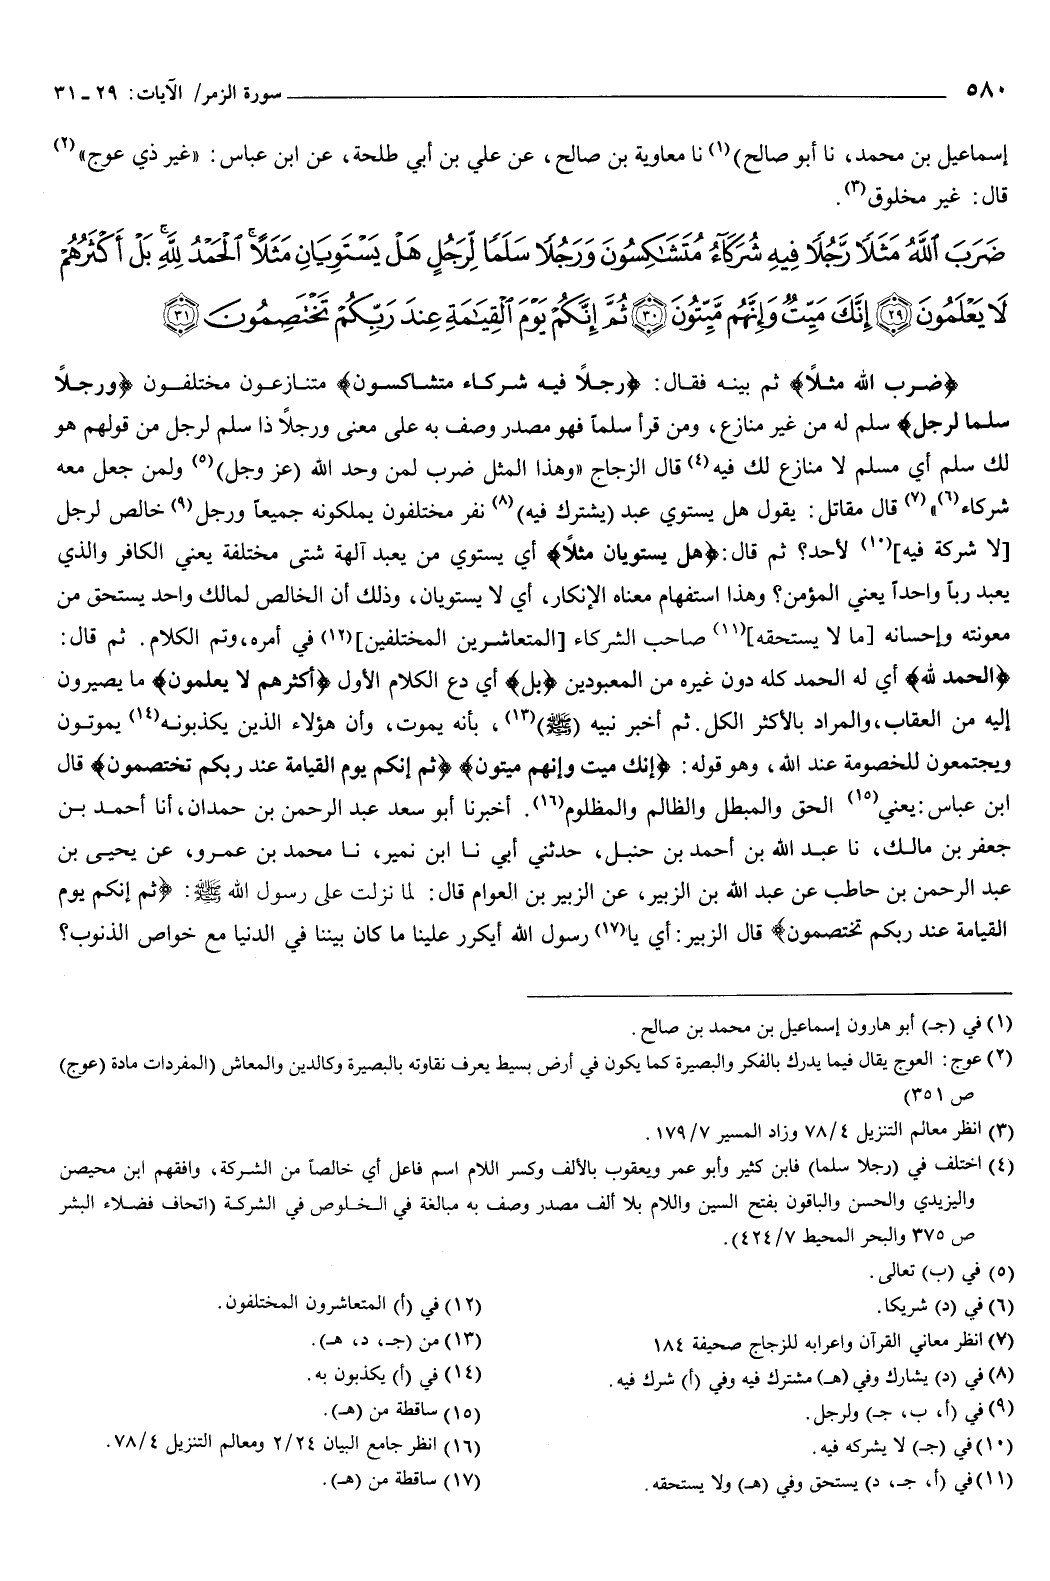 ٥٨٠ سورة الزمر/ الآيات: ٢٩ ـ ٣١
إسماعيل بن محمد، نا أبو صالح)(١) نا معاوية بن صالح، عن علي بن أبي طلحة، عن ابن عباس: «غير ذي عوج»(٢)
قال: غير مخلوق(٣).
ضَرَبَ ٱللَّهُ مَثَلًا رَّجُلًا فِيهِ شُرَكَآءُ مُتَشَٰكِسُونَ وَرَجُلًا سَلَمًا لِّرَجُلٍ هَلْ يَسْتَوِيَانِ مَثَلًا ۚ ٱلْحَمْدُ لِلَّهِ ۚ بَلْ أَكْثَرُهُمْ
لَا يَعْلَمُونَ ﴿٢٩﴾ إِنَّكَ مَيِّتٌ وَإِنَّهُم مَّيِّتُونَ ﴿٣٠﴾ ثُمَّ إِنَّكُمْ يَوْمَ ٱلْقِيَٰمَةِ عِندَ رَبِّكُمْ تَخْتَصِمُونَ ﴿٣١﴾
﴿ضرب الله مثلاً﴾ ثم بينه فقال: ﴿رجلاً فيه شركاء متشاكسون﴾ متنازعون مختلفون ﴿ورجلاً
سلما لرجل﴾ سلم له من غير منازع، ومن قرأ سلماً فهو مصدر وصف به على معنى ورجلاً ذا سلم لرجل من قولهم هو
لك سلم أي مسلم لا منازع لك فيه(٤) قال الزجاج «وهذا المثل ضرب لمن وحد الله (عز وجل)(٥) ولمن جعل معه
شركاء(٦)»(٧) قال مقاتل: يقول هل يستوي عبد (يشترك فيه)(٨) نفر مختلفون يملكونه جميعاً ورجل(٩) خالص لرجل
[لا شركة فيه](١٠) لأحد؟ ثم قال:﴿هل يستويان مثلاً﴾ أي يستوي من يعبد آلهة شتى مختلفة يعني الكافر والذي
يعبد رباً واحداً يعني المؤمن؟ وهذا استفهام معناه الإنكار، أي لا يستويان، وذلك أن الخالص لمالك واحد يستحق من
معونته وإحسانه [ما لا يستحقه](١١) صاحب الشركاء [المتعاشرين المختلفين](١٢) في أمره،وتم الكلام. ثم قال:
﴿الحمد لله﴾ أي له الحمد كله دون غيره من المعبودين ﴿بل﴾ أي دع الكلام الأول ﴿أكثرهم لا يعلمون﴾ ما يصيرون
إليه من العقاب،والمراد بالأكثر الكل.ثم أخبر نبيه (ﷺ)(١٣)، بأنه يموت، وأن هؤلاء الذين يكذبونه(١٤) يموتون
ويجتمعون للخصومة عند الله، وهو قوله: ﴿إنك ميت وإنهم ميتون﴾ ﴿ثم إنكم يوم القيامة عند ربكم تختصمون﴾ قال
ابن عباس:يعني(١٥) الحق والمبطل والظالم والمظلوم(١٦). أخبرنا أبو سعد عبد الرحمن بن حمدان،أنا أحمد بن
جعفر بن مالك، نا عبد الله بن أحمد بن حنبل، حدثني أبي نا ابن نمير، نا محمد بن عمرو، عن يحيى بن
عبد الرحمن بن حاطب عن عبد الله بن الزبير، عن الزبير بن العوام قال: لما نزلت على رسول الله ﷺ: ﴿ثم إنكم يوم
القيامة عند ربكم تختصمون﴾ قال الزبير:أي يا(١٧) رسول الله أيكرر علينا ما كان بيننا في الدنيا مع خواص الذنوب؟
(١) في (جـ) أبو هارون إسماعيل بن محمد بن صالح.
(٢) عوج: العوج يقال فيما يدرك بالفكر والبصيرة كما يكون في أرض بسيط يعرف نقاوته بالبصيرة وكالدين والمعاش (المفردات مادة (عوج)
ص ٣٥١)
(٣) انظر معالم التنزيل ٧٨/٤ وزاد المسير ١٧٩/٧.
(٤) اختلف في (رجلا سلما) فابن كثير وأبو عمر ويعقوب بالألف وكسر اللام اسم فاعل أي خالصاً من الشركة، وافقهم ابن محيصن
واليزيدي والحسن والباقون بفتح السين واللام بلا ألف مصدر وصف به مبالغة في الخلوص في الشركة (اتحاف فضلاء البشر
ص ٣٧٥ والبحر المحيط ٤٢٤/٧).
(٥) في (ب) تعالى.
(٦) في (د) شريكا.
(٧) انظر معاني القرآن واعرابه للزجاج صحيفة ١٨٤
(٨) في (د) يشارك وفي (هـ) مشترك فيه وفي (أ) شرك فيه.
(٩) في (أ، ب، جـ) ولرجل.
(١٠) في (جـ) لا يشركه فيه.
(١١) في (أ، جـ، د) يستحق وفي (هـ) ولا يستحقه.
(١٢) في (أ) المتعاشرون المختلفون.
(١٣) من (جـ، د، هـ).
(١٤) في (أ) يكذبون به.
(١٥) ساقطة من (هـ).
(١٦) انظر جامع البيان ٢/٢٤ ومعالم التنزيل ٧٨/٤.
(١٧) ساقطة من (هـ).